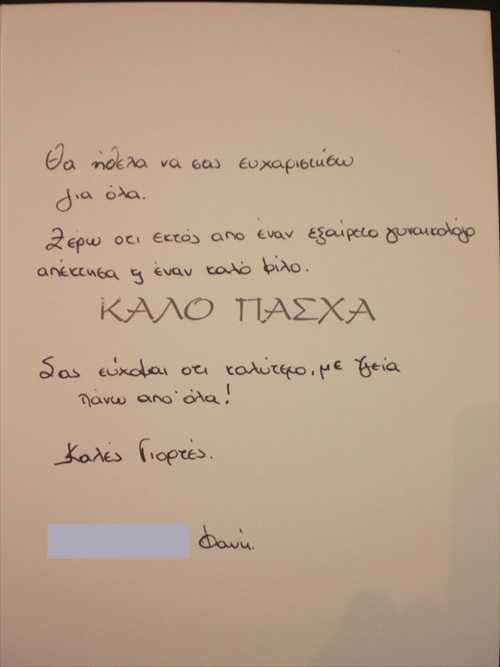 Θα ήθελα να σας ευχαριστήσω
για όλα.
Ξέρω οτι εκτός απο έναν εξαίρετο γυναικολόγο
απέκτησα ϗ έναν καλό φίλο.
ΚΑΛΟ ΠΑΣΧΑ
Σας εύχομαι οτι καλύτερο, με Υγεία
πάνω απ' όλα!
Καλές Γιορτές.
Φανή.